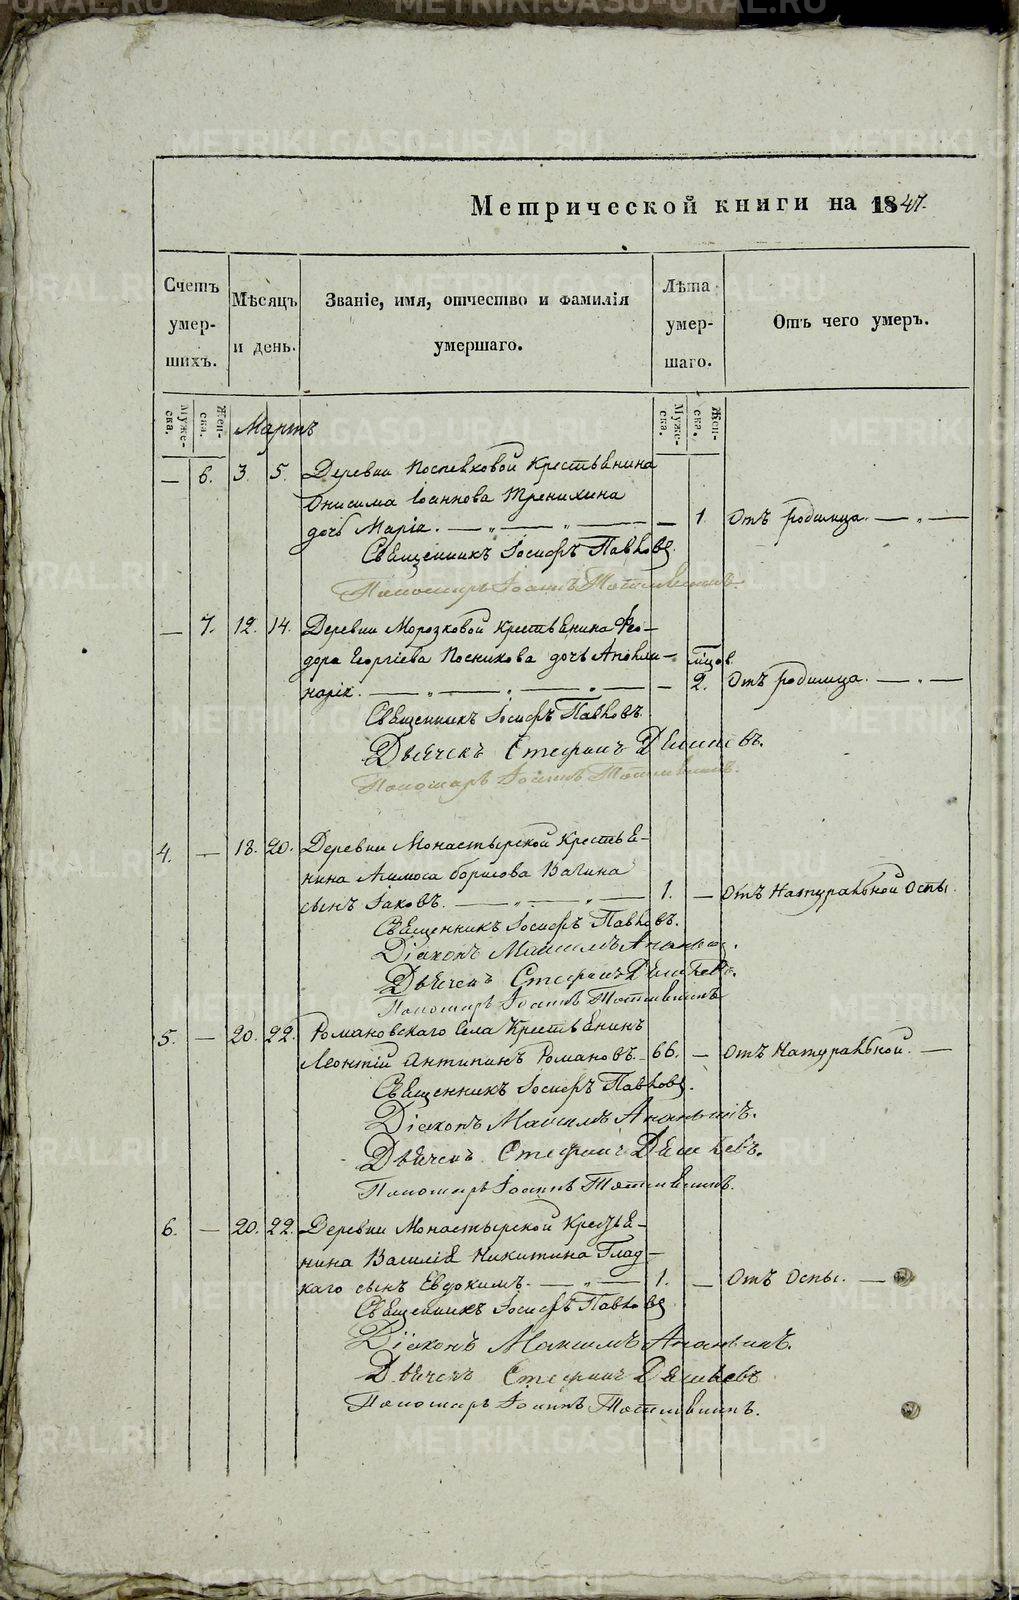 Метрической книги на 1847.
Счетъ умершихъ.
Мѣсяцъ и день.
Званіе, имя, отчество и фамилія умершаго.
Лѣта умершаго.
Отъ чего умеръ.
Мужеска.
Женска.
Мужеска.
Женска.
Мартъ
— 6. 3. 5. Деревни крестьянина
Онисима Іоаннова Тренихина
дочь Марія. — „ — „ — — 1. Отъ родимца. — „ —
Священникъ Іосифъ Павловъ.
Пономарь Іоаннъ
— 7. 12. 14. Деревни Морозковой крестьянина Ѳео-
дора Георгіева Посникова дочь Аполли- мѣсцов
нарія. — „ — „ — „ — — 2. Отъ родимца. — „ —
Священникъ Іосифъ Павловъ.
Дьячекъ Стефанъ
Пономарь Іоаннъ
4. — 18. 20. Деревни Монастырской крестья-
нина Борисова Вагина
сынъ Іаковъ. — „ — „ — 1. — Отъ Натуральной Оспы.
Священникъ Іосифъ Павловъ.
Діаконъ Максимъ
Дьячекъ Стефанъ
Пономарь Іоаннъ
5. — 20. 22. Романовскаго Села Крестьянинъ
Леонтій Антипинъ Романовъ. 66. — Отъ Натуральной. —
Священникъ Іосифъ Павловъ.
Діаконъ Максимъ
Дьячекъ Стефанъ
Пономарь Іоаннъ
6. — 20. 22. Деревни Монастырской Крестья-
нина Василія Никитина Глад-
каго сынъ Евдокимъ. — „ — 1. — Отъ Оспы. —
Священникъ Іосифъ Павловъ
Діаконъ Максимъ
Дьячекъ Стефанъ
Пономарь Іоаннъ
METRIKI.GASO-URAL.RU